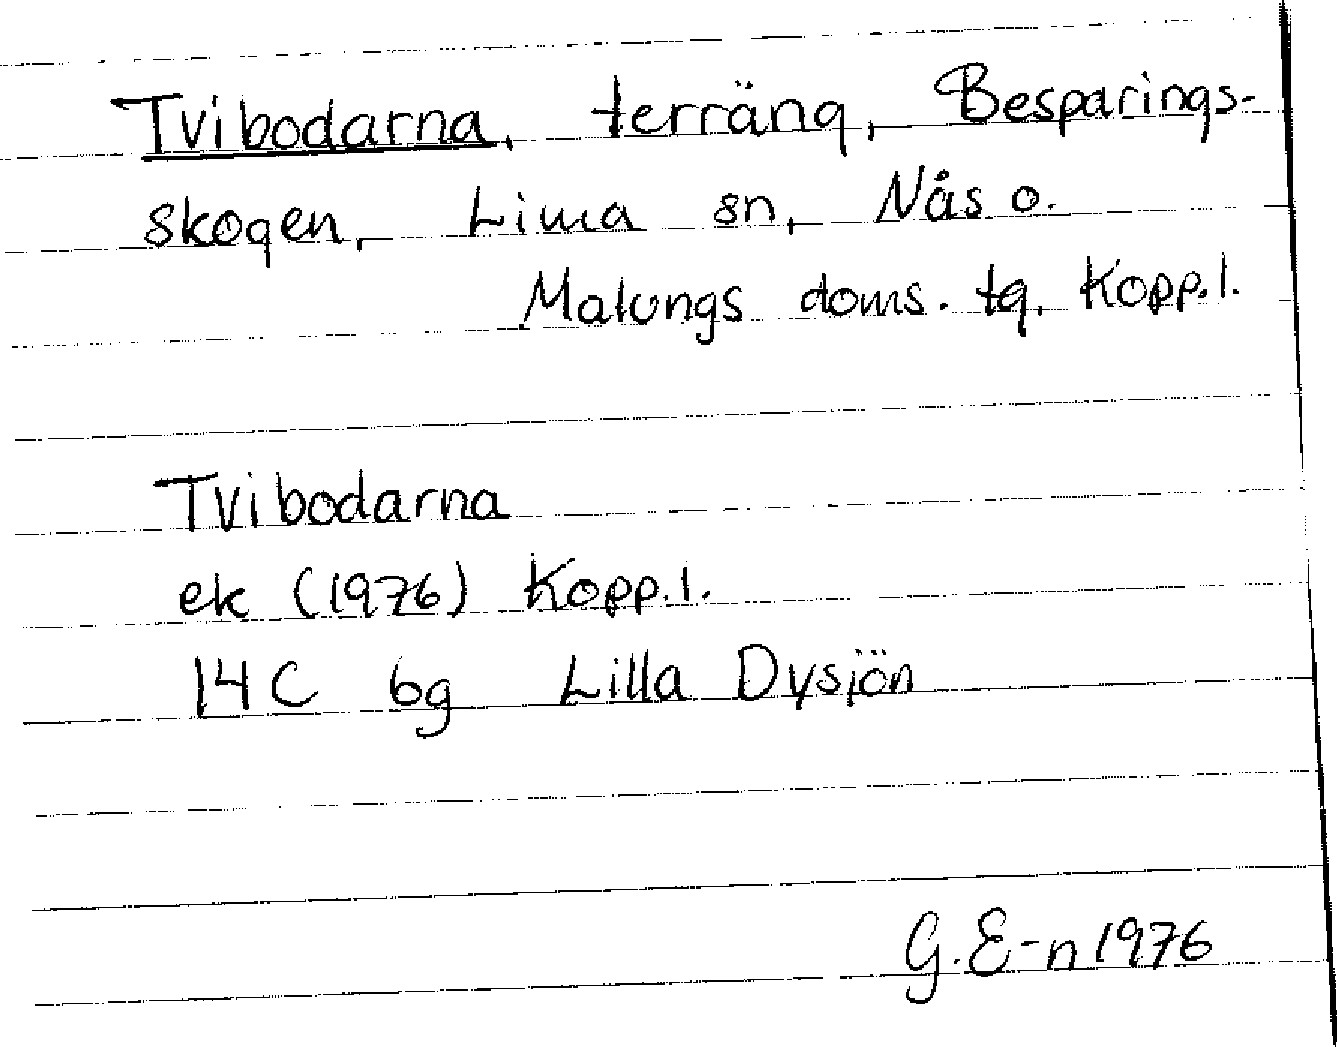 Tvibodarna, terräng, Besparings-
skogen, Lima sn, Nås o.
Malungs doms. tg, Kopp.l.
Tvibodarna
ek (1976) Kopp.l.
14 C 6g Lilla Dysjön
G. E-n 1976